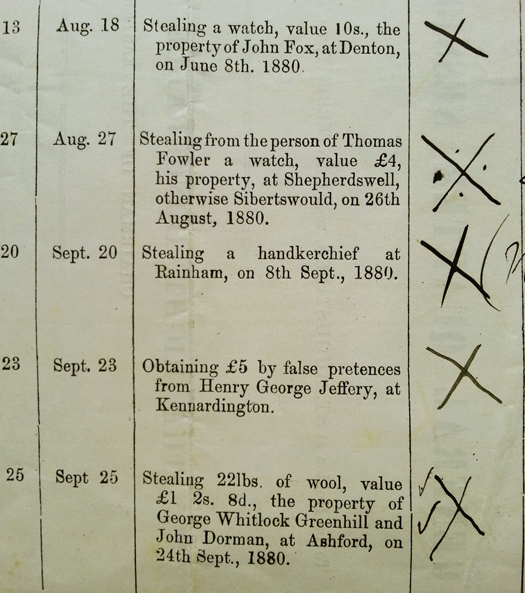 13 Aug. 18 Stealing a watch, value 10s., the
property of John Fox, at Denton,
on June 8th. 1880.
27 Aug. 27 Stealing from the person of Thomas
Fowler a watch, value £4,
his property, at Shepherdswell,
otherwise Sibertswould, on 26th
August, 1880.
20 Sept. 20 Stealing a handkerchief at
Rainham, on 8th Sept., 1880.
23 Sept. 23 Obtaining £5 by false pretences
from Henry George Jeffery, at
Kennardington.
25 Sept 25 Stealing 22lbs. of wool, value
£1 2s. 8d., the property of
George Whitlock Greenhill and
John Dorman, at Ashford, on
24th Sept., 1880.